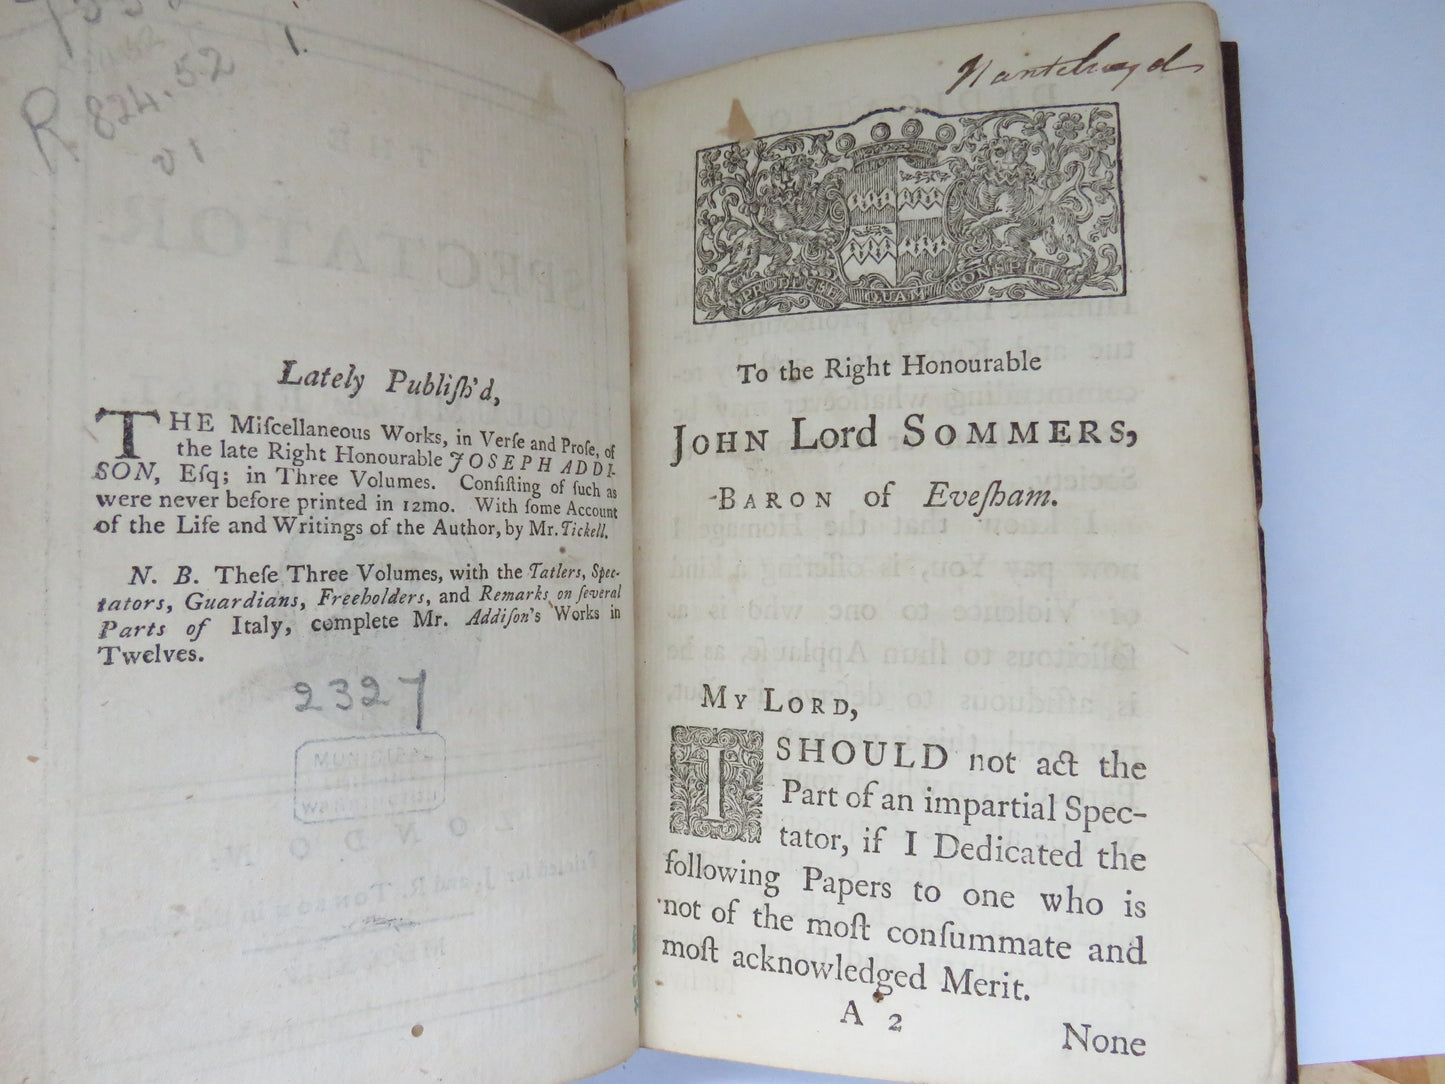 R 824.52
v 1
1.
Lately Publiſh'd,
THE Miſcellaneous Works, in Verſe and Proſe, of
the late Right Honourable JOSEPH ADDI-
SON, Eſq; in Three Volumes. Conſiſting of ſuch as
were never before printed in 12mo. With ſome Account
of the Life and Writings of the Author, by Mr. Tickell.
N. B. Theſe Three Volumes, with the Tatlers, Spec-
tators, Guardians, Freeholders, and Remarks on ſeveral
Parts of Italy, complete Mr. Addiſon's Works in
Twelves.
2327
PRODESSE QUAM CONSPICI
To the Right Honourable
JOHN Lord SOMMERS,
BARON of Eveſham.
MY LORD,
I SHOULD not act the
Part of an impartial Spec-
tator, if I Dedicated the
following Papers to one who is
not of the moſt conſummate and
moſt acknowledged Merit.
A 2
None